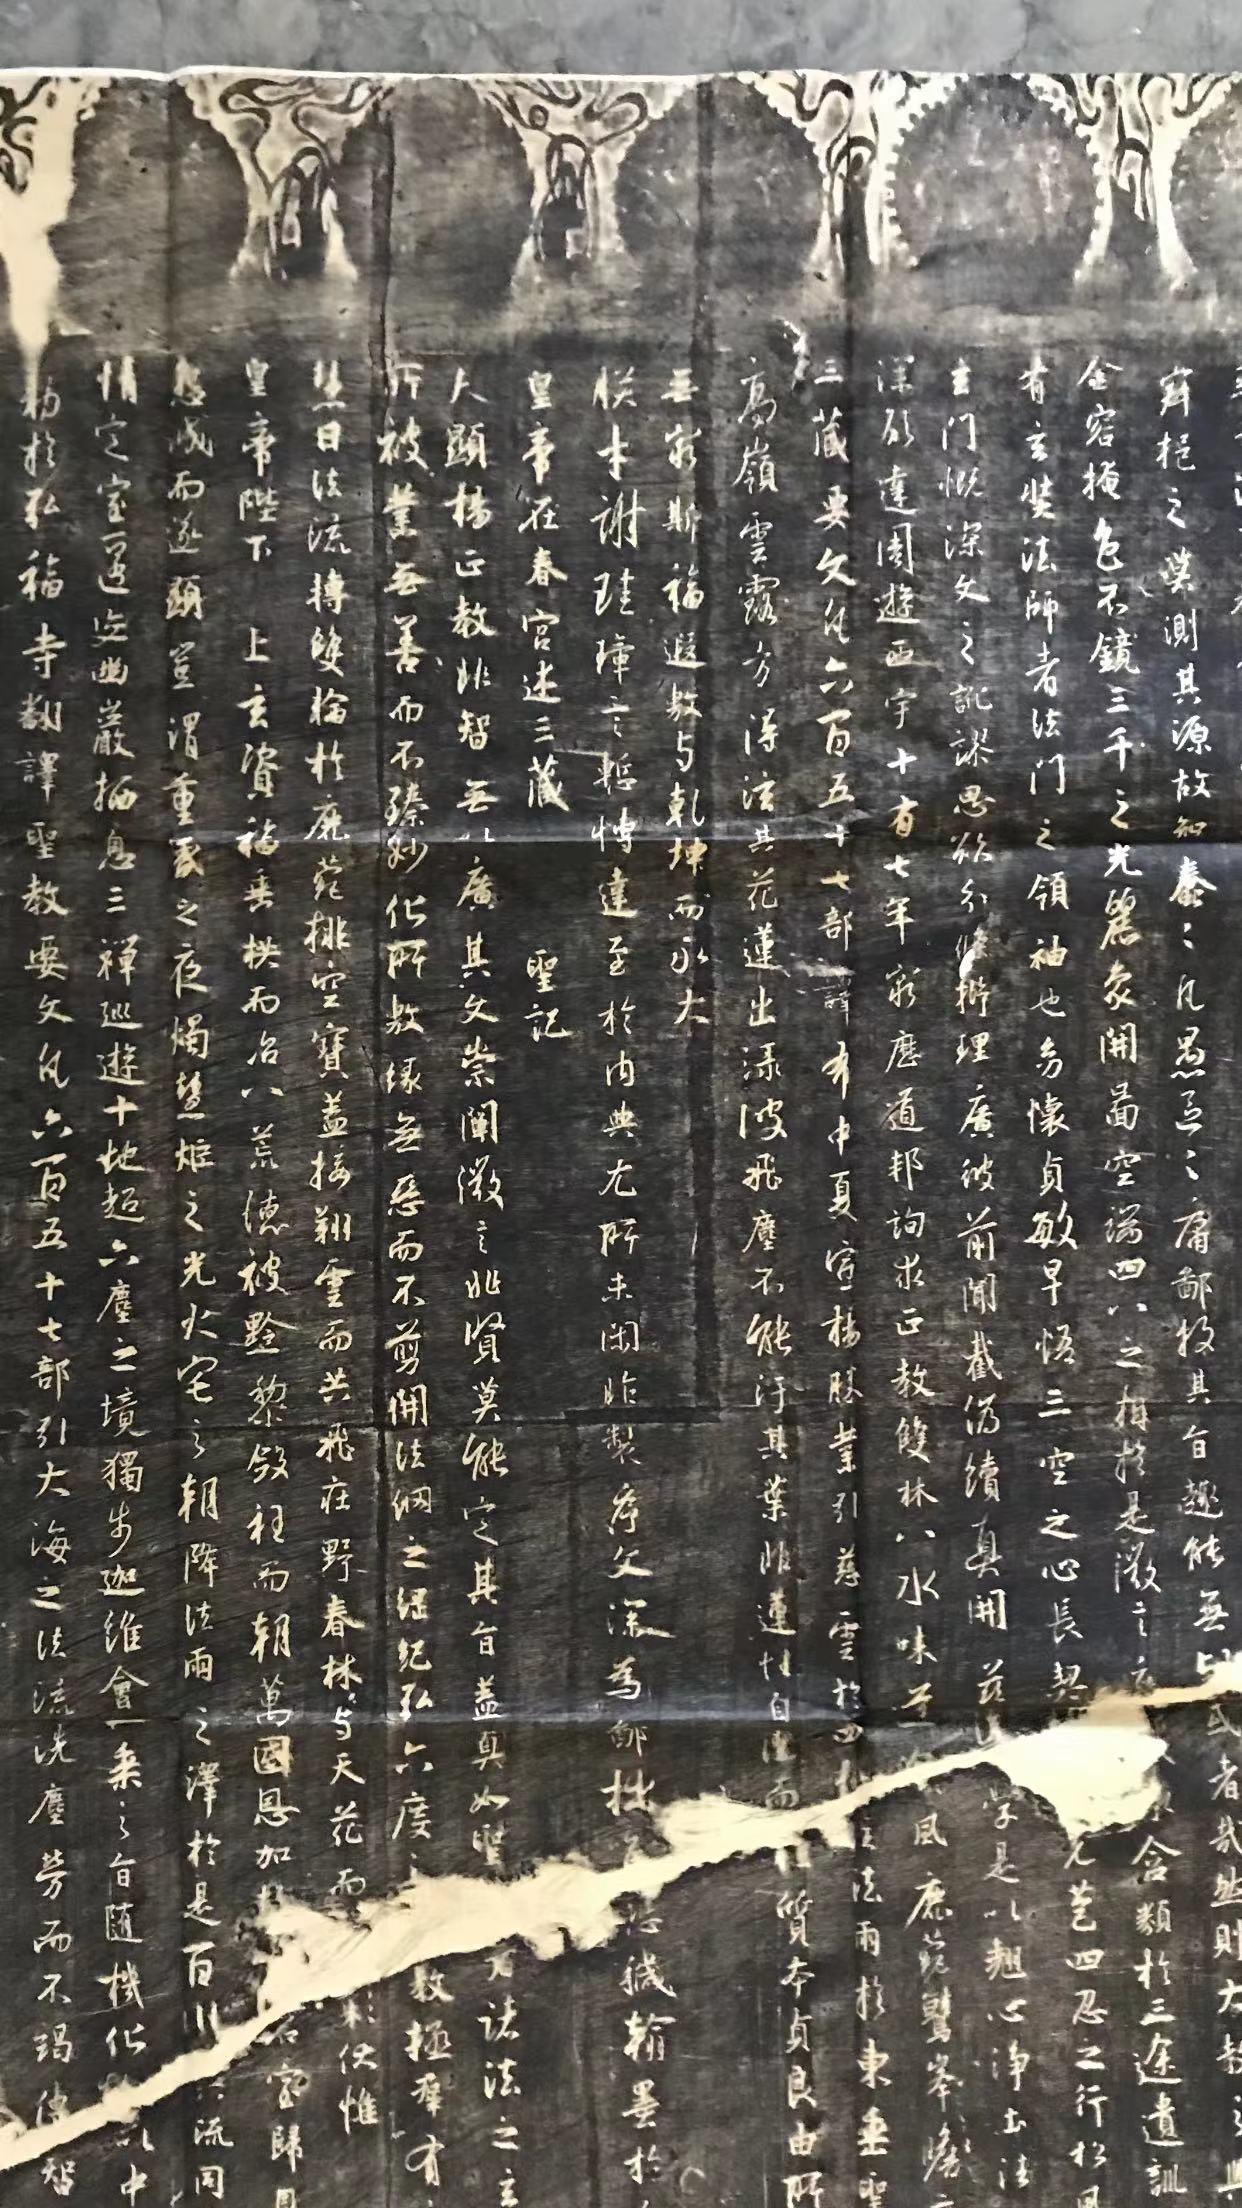 挹之莫測其源故知蠢〻凡愚區〻庸鄙投其旨趣能無或者哉然則大教之興
金容掩色不鏡三千之光麗象開圖空端四八之相於是微言含類於三途遺訓
有玄奘法師者法門之領袖也幼懷貞敏早悟三空之心長契先苞四忍之行松風
玄門慨深文之訛謬思欲分條析理廣彼前聞截偽續真開茲學是以翹心淨土法
深願達周遊西宇十有七年窮歷道邦詢求正教雙林八水味道風鹿菀鷲峯瞻
三藏要文凡六百五十七部譯布中夏宣揚勝業引慈雲於西法雨於東垂聖
高嶺雲露方得泫其花蓮出淥波飛塵不能汙其葉非蓮性自潔而質本貞良由所
無窮斯福遐敷与乾坤而永大
朕才謝珪璋言慙博達至於內典尤所未閑昨製序文深為鄙拙恐穢翰墨於
皇帝在春宮述三藏 聖記
夫顯揚正教非智無以廣其文崇闡微言非賢莫能定其旨蓋真如聖者諸法之玄
所被業無善而不臻妙化所敷緣無惡而不剪開法網之綱紀弘六度教拯群有
慧日法流轉雙輪於鹿菀排空寶蓋接翔雲而共飛莊野春林与天花而彩伏惟
皇帝陛下 上玄資福垂拱而治八荒德被黔黎斂衽而朝萬國恩加石室歸貝
懇誠而遂顯豈謂重昏之夜燭慧炬之光火宅之朝降法雨之澤於是百川流同
情定室匿迹幽巖栖息三禪巡遊十地超六塵之境獨步迦維會一乘之旨隨機化以中
勑於弘福寺翻譯聖教要文凡六百五十七部引大海之法流洗塵勞而不竭傳智